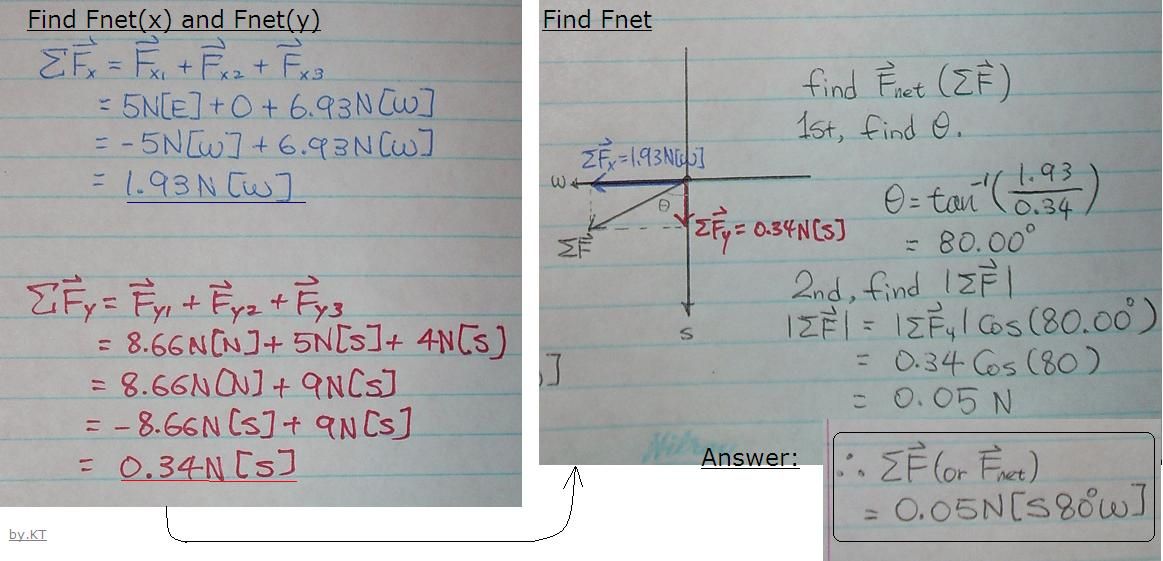 Find Fnet(x) and Fnet(y)
ΣF⃗x = F⃗x1 + F⃗x2 + F⃗x3
= 5N[E] + 0 + 6.93N[W]
= -5N[W] + 6.93N[W]
= 1.93N[W]
ΣF⃗y = F⃗y1 + F⃗y2 + F⃗y3
= 8.66N[N] + 5N[S] + 4N[S]
= 8.66N[N] + 9N[S]
= -8.66N[S] + 9N[S]
= 0.34N[S]
by.KT
Find Fnet
ΣF⃗x = 1.93N[W]
W
θ
ΣF⃗y = 0.34N[S]
ΣF⃗
S
]
find F⃗net (ΣF⃗)
1st, find θ.
θ = tan⁻¹(1.93/0.34)
= 80.00°
2nd, find |ΣF⃗|
|ΣF⃗| = |ΣF⃗y| Cos(80.00°)
= 0.34 Cos(80)
= 0.05 N
Answer:
∴ ΣF⃗ (or F⃗net)
= 0.05N[S80°W]